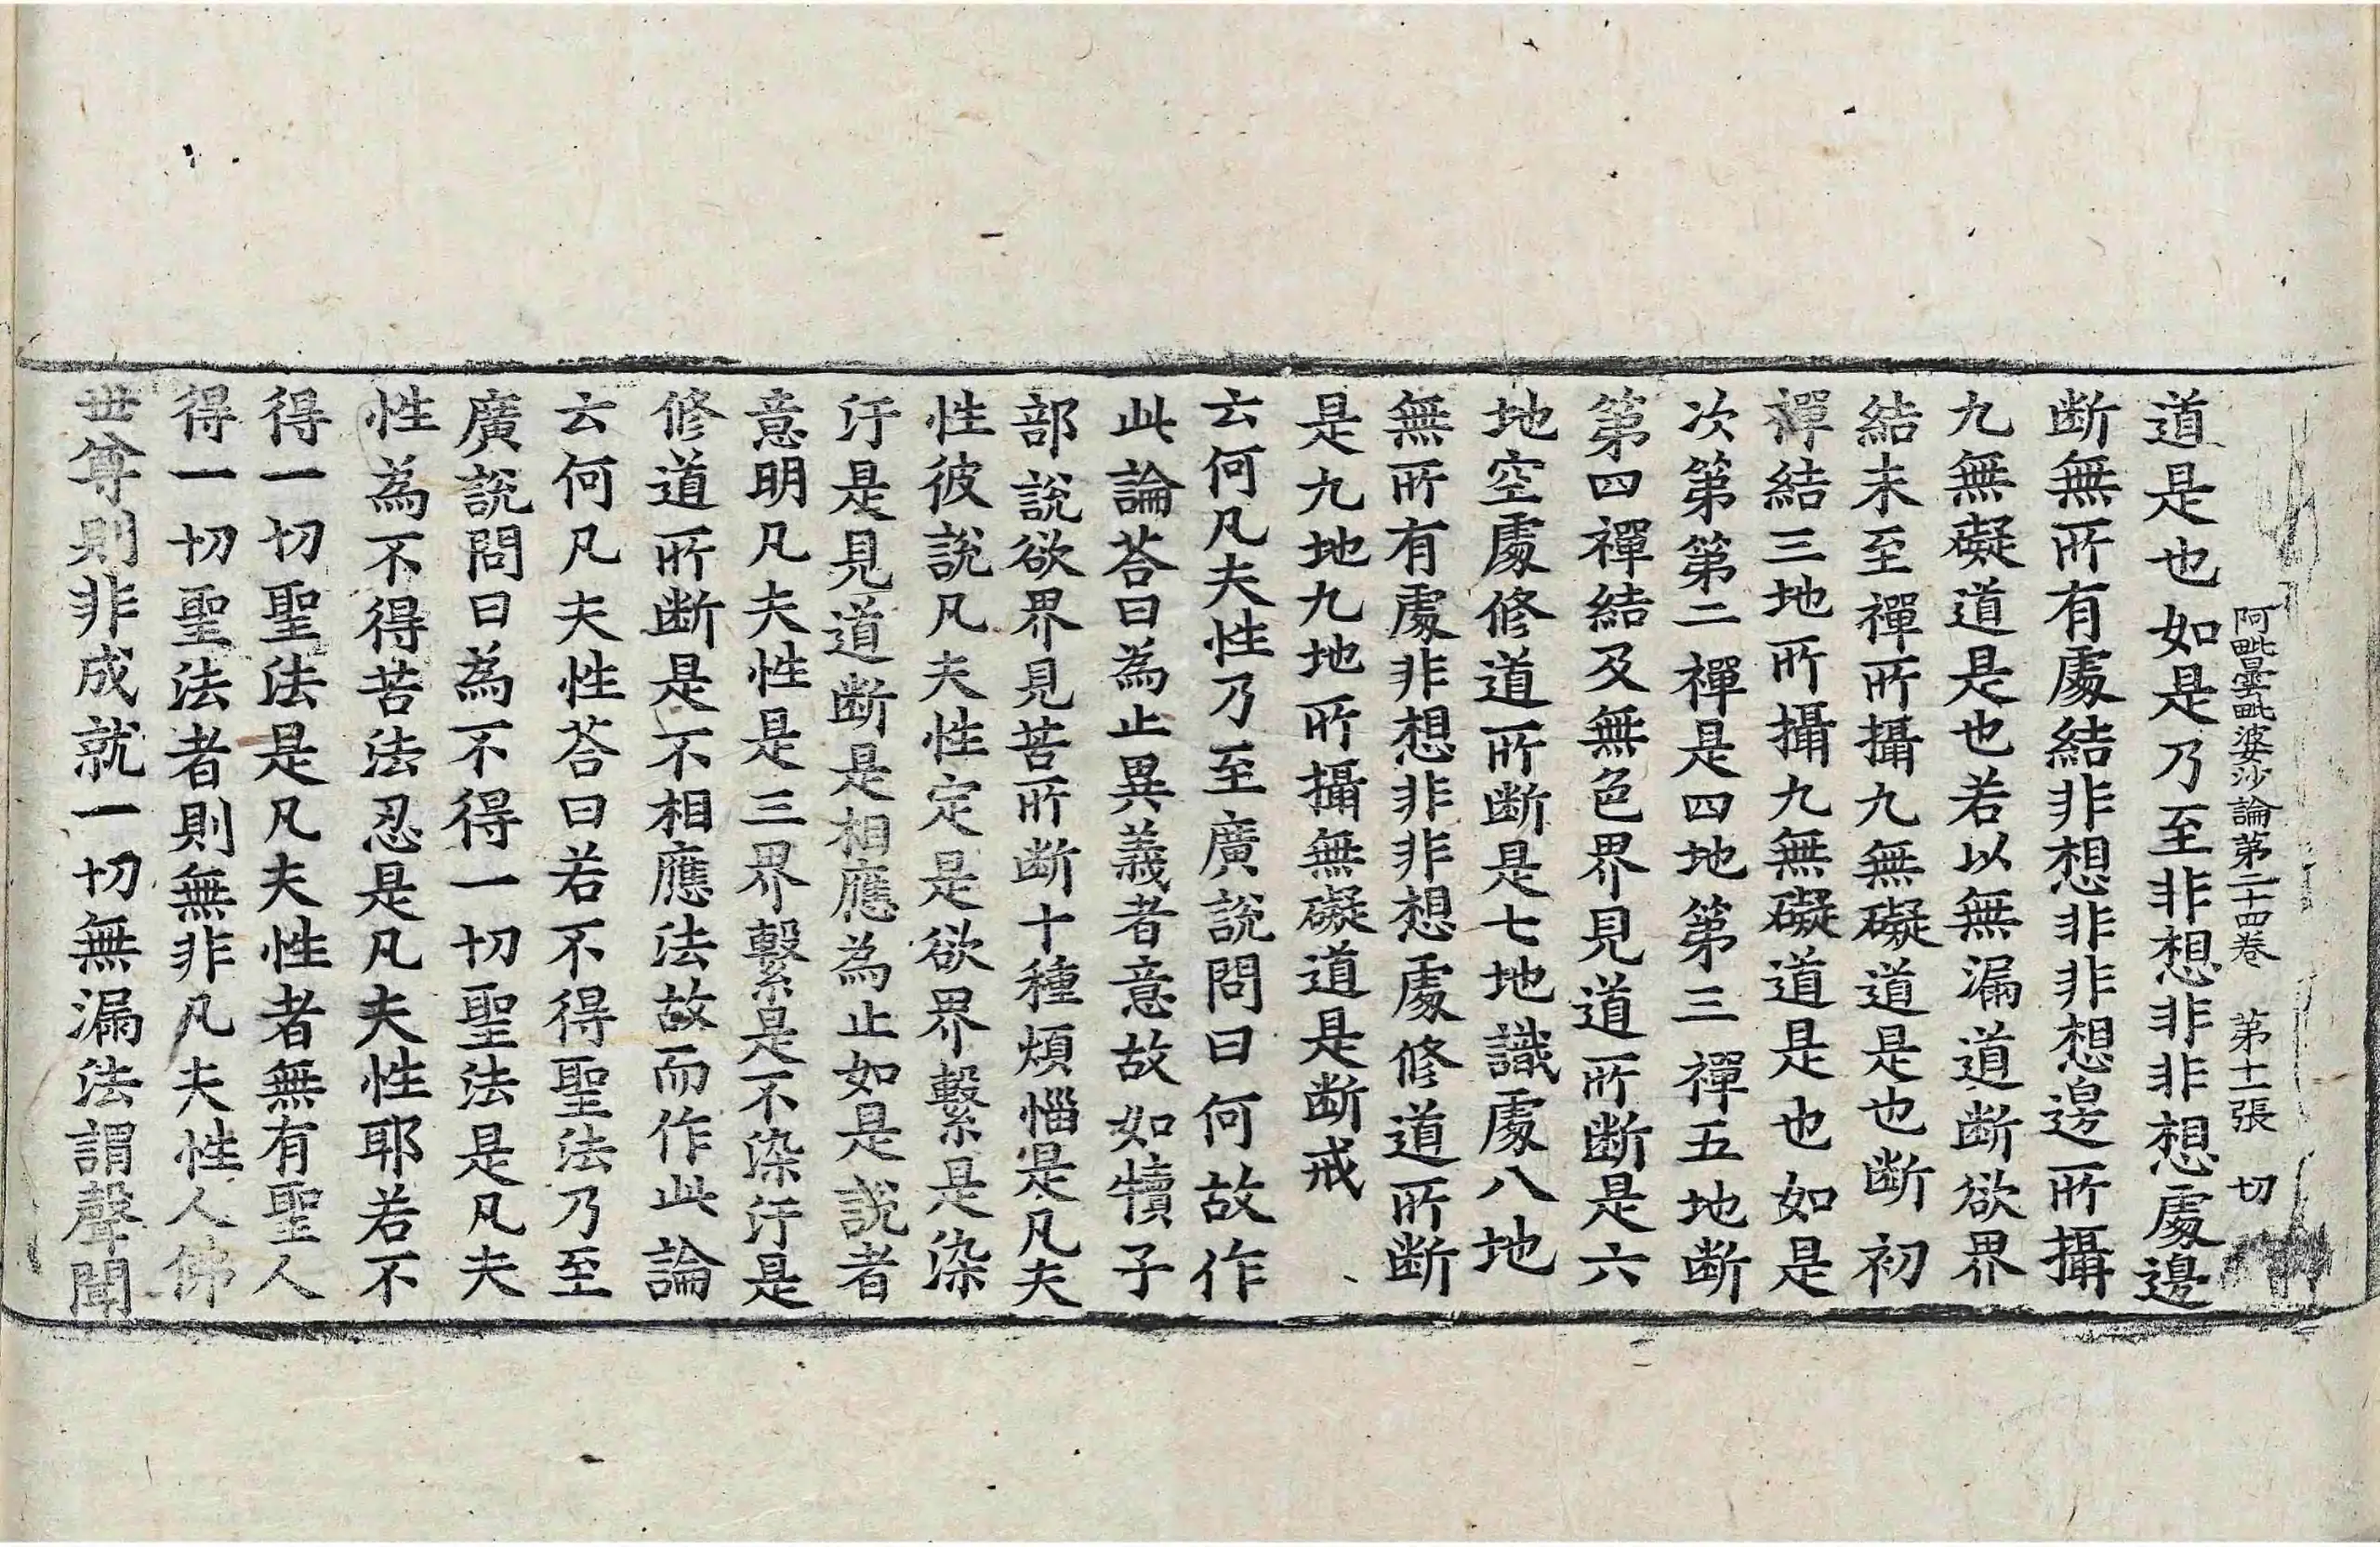 阿毗曇毗婆沙論第二十四卷 第十一張 切
道是也如是乃至非想非非想處邊
断無所有處結非想非非想邊所攝
九無礙道是也若以無漏道断欲界
結未至禪所攝九無礙道是也断初
禪結三地所攝九無礙道是也如是
次第第二禪是四地第三禪五地断
第四禪結及無色界見道所断是六
地空處修道所断是七地識處八地
無所有處非想非非想處修道所断
是九地九地所攝無礙道是断戒
云何凡夫性乃至廣說問曰何故作
此論荅曰為止異義者意故如犢子
部說欲界見苦所断十種煩惱是凡夫
性彼說凡夫性定是欲界繫是染
汙是見道断是相應為止如是說者
意明凡夫性是三界繫是不染汙是
修道所断是不相應法故而作此論
云何凡夫性荅曰若不得聖法乃至
廣說問曰為不得一切聖法是凡夫
性為不得苦法忍是凡夫性耶若不
得一切聖法是凡夫性者無有聖人
得一切聖法者則無非凡夫性人佛
世尊則非成就一切無漏法謂聲聞